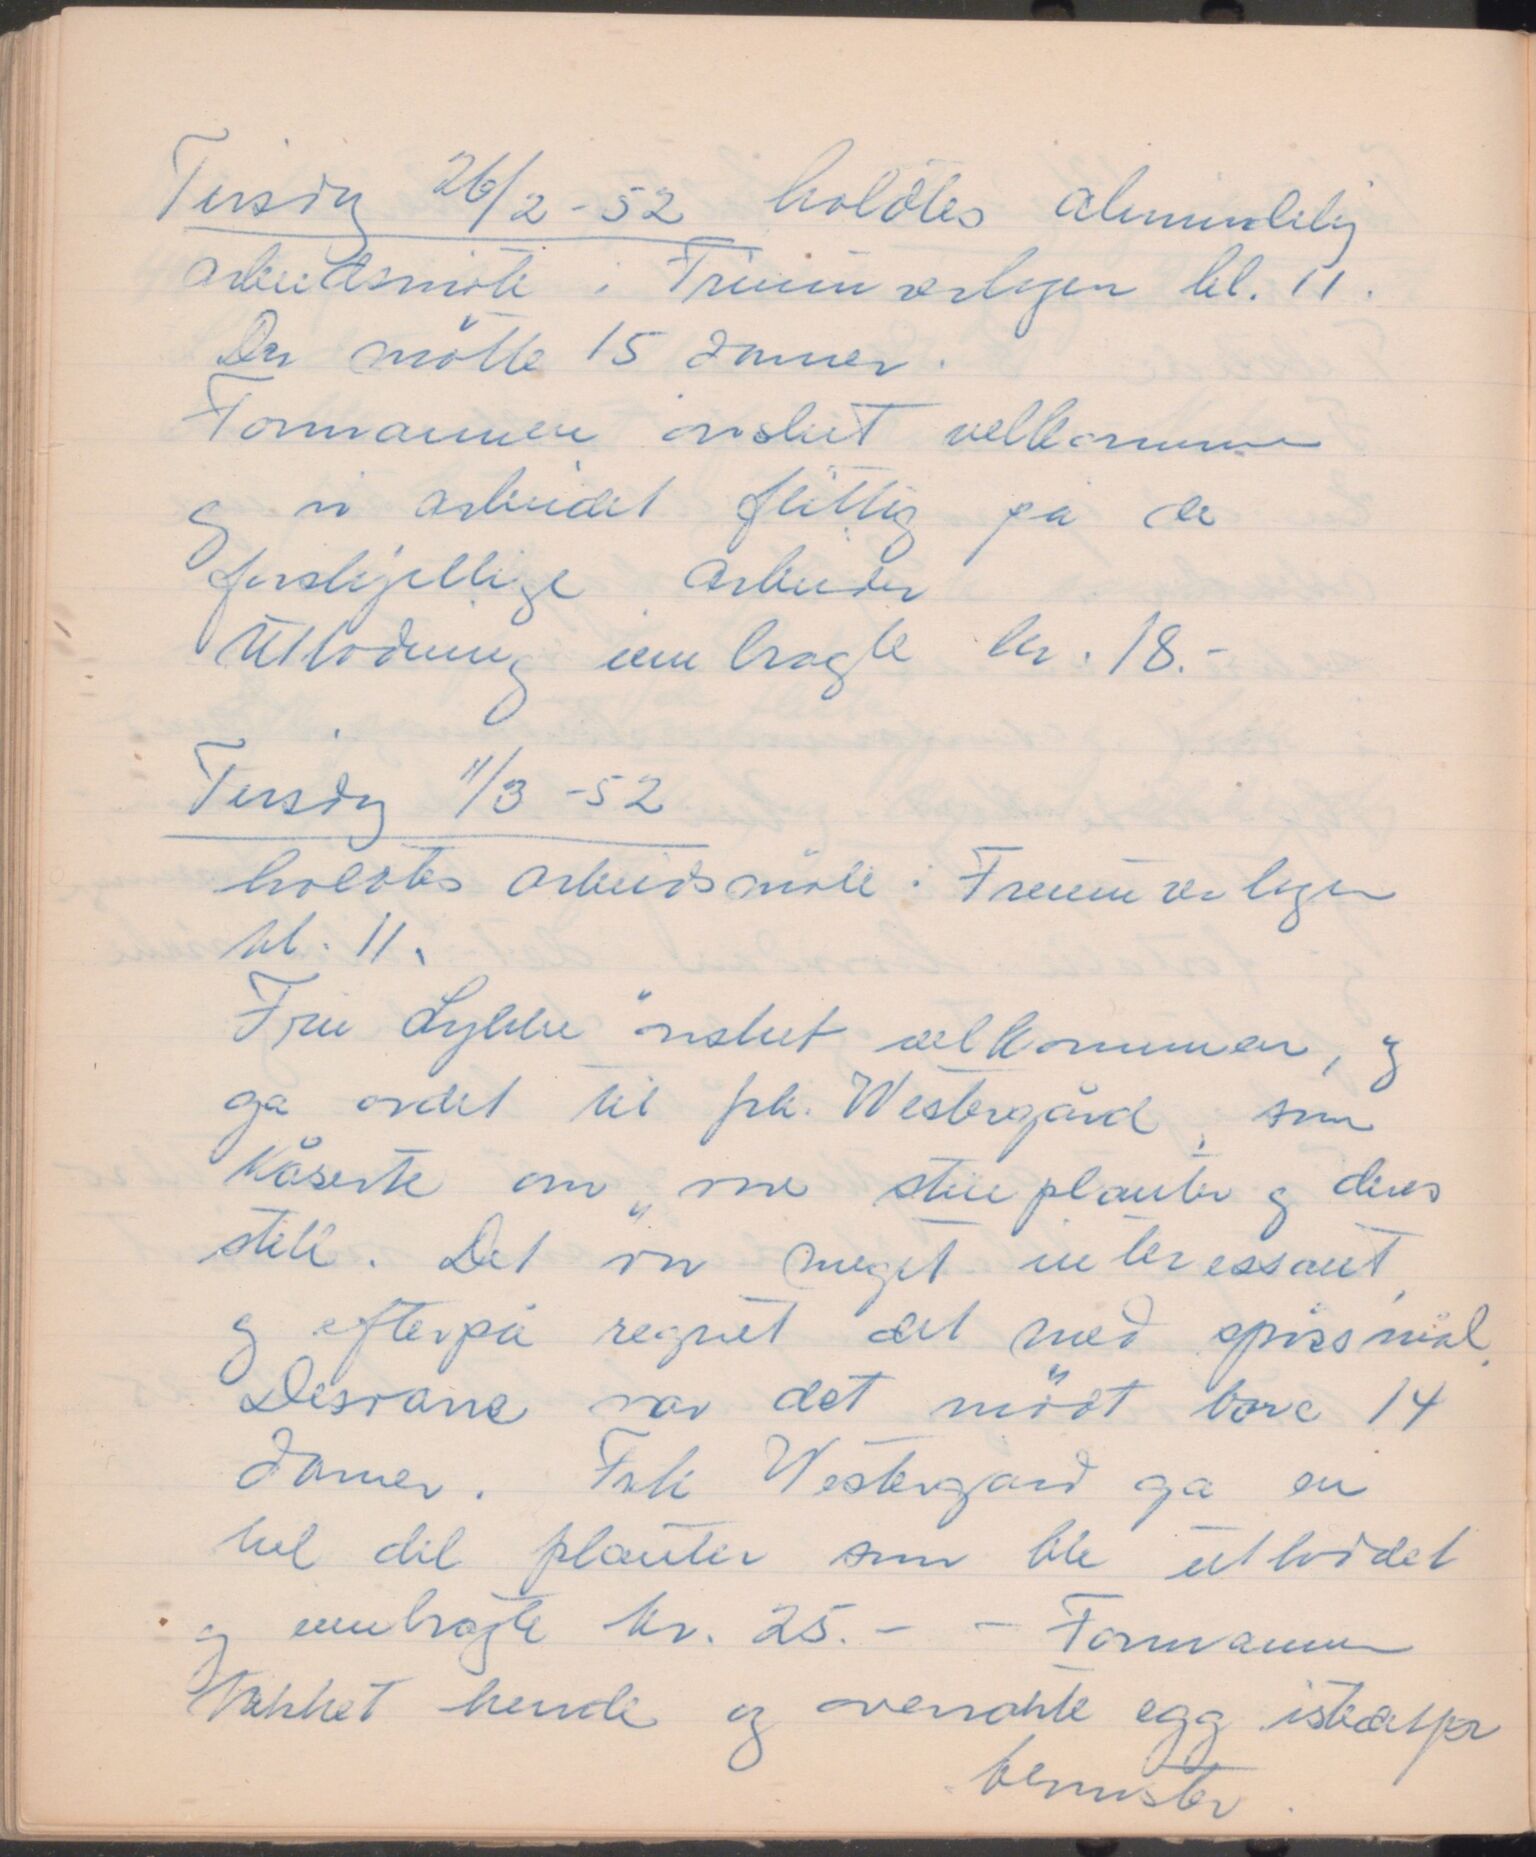 Tirsdag 26/2 - 52 holdtes almindelig
arbeidsmöte i Frimurerlogen kl. 11.
Der mötte 15 damer.
Formannen önsket velkommen
og vi arbeidet flittig på de
forskjellige arbeider
Utlodning innbragte kr. 18.-
Tirsdag 11/3 - 52
holdtes arbeidsmöte i Frimurerlogen
kl. 11.
Fru Lykke önsket velkommen, og
ga ordet til frk. Westergård, som
kåserte om stueplanter og deres
stell. Det var meget interessant,
og efterpå regnet det med spörsmål.
Desværre var det mödt bare 14
damer. Frk Westergård ga en
hel del planter som ble utloddet
og innbragte kr. 25.- - Formannen
takket hende og overrakte egg istedetfor
blomster.